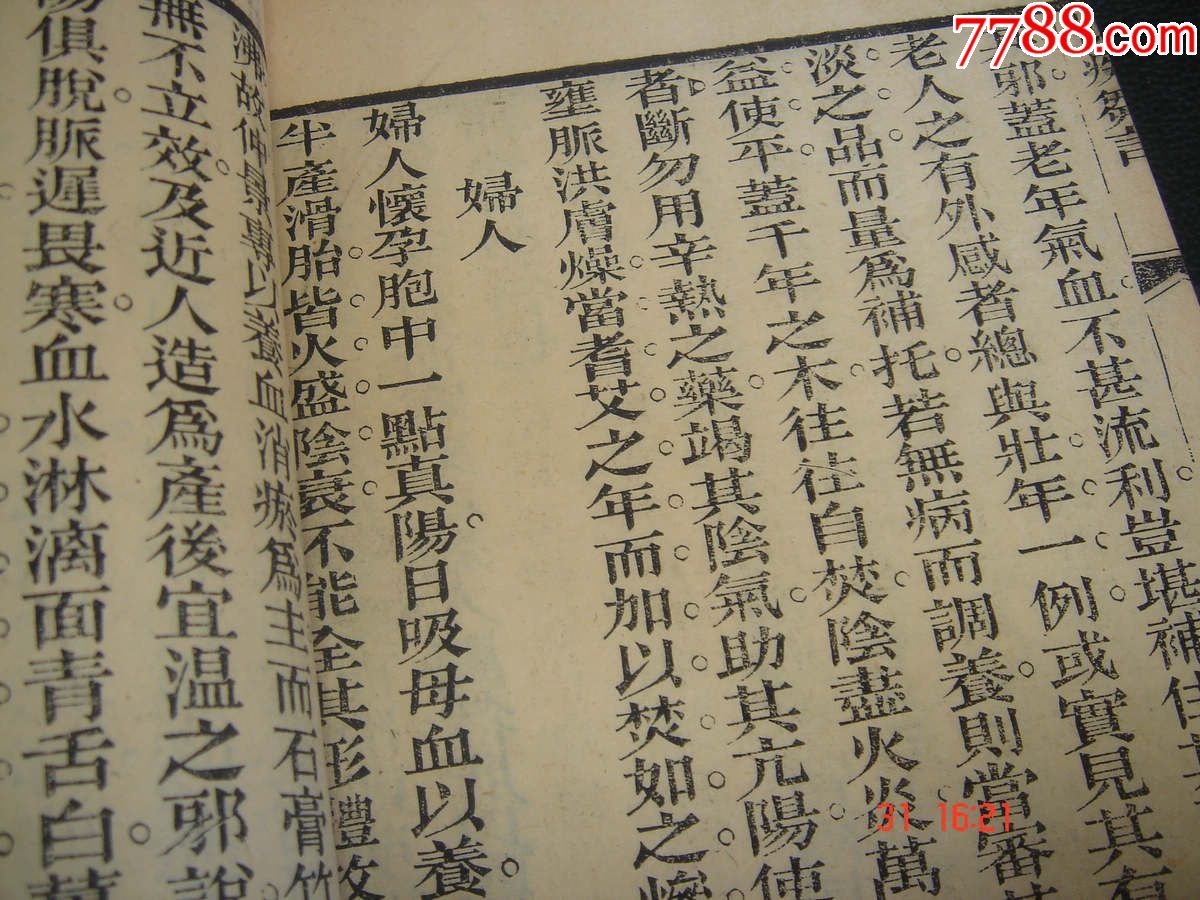 7788.com
疾芻言
邪蓋老年氣血不甚流利豈堪補住
老人之有外感者總與壯年一例或實見其有
淡之品而量爲補托若無病而調養則當審
益使平蓋千年之木往往自焚陰盡火炎萬
者斷勿用辛熱之藥竭其陰氣助其亢陽使
壅脈洪膚燥當耆艾之年而加以焚如之慘
婦人
婦人懷孕胞中一點真陽日吸母血以養
半產滑胎皆火盛陰衰不能全其形體故
故仲景專以養血消瘀爲主而石膏竹
無不立效及近人造爲產後宜温之邪說
俱脫脈遲畏寒血水淋漓面青舌白
31 16:21